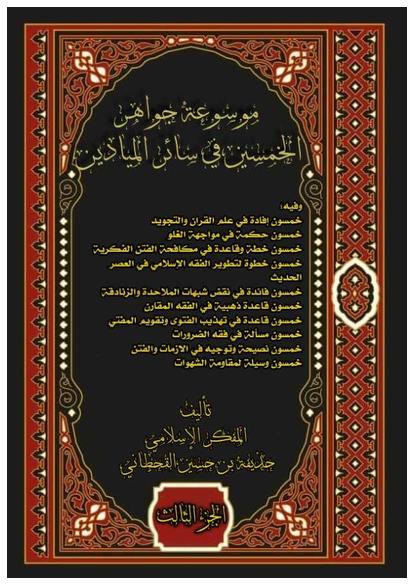 موسوعة جواهر
الخمسين في سائر الميادين
وفيه:
خمسون إفادة في علم القران والتجويد
خمسون حكمة في مواجهة الغلو
خمسون خطة وقاعدة في مكافحة الفتن الفكرية
خمسون خطوة لتطوير الفقه الإسلامي في العصر
الحديث
خمسون فائدة في نقض شبهات الملاحدة والزنادقة
خمسون قاعدة ذهبية في الفقه المقارن
خمسون قاعدة في تهذيب الفتوى وتقويم المفتي
خمسون مسألة في فقه الضرورات
خمسون نصيحة وتوجيه في الازمات والفتن
خمسون وسيلة لمقاومة الشهوات
تأليف
المفكر الإسلامي
حذيفة بن حسين القحطاني
الجزء الثالث